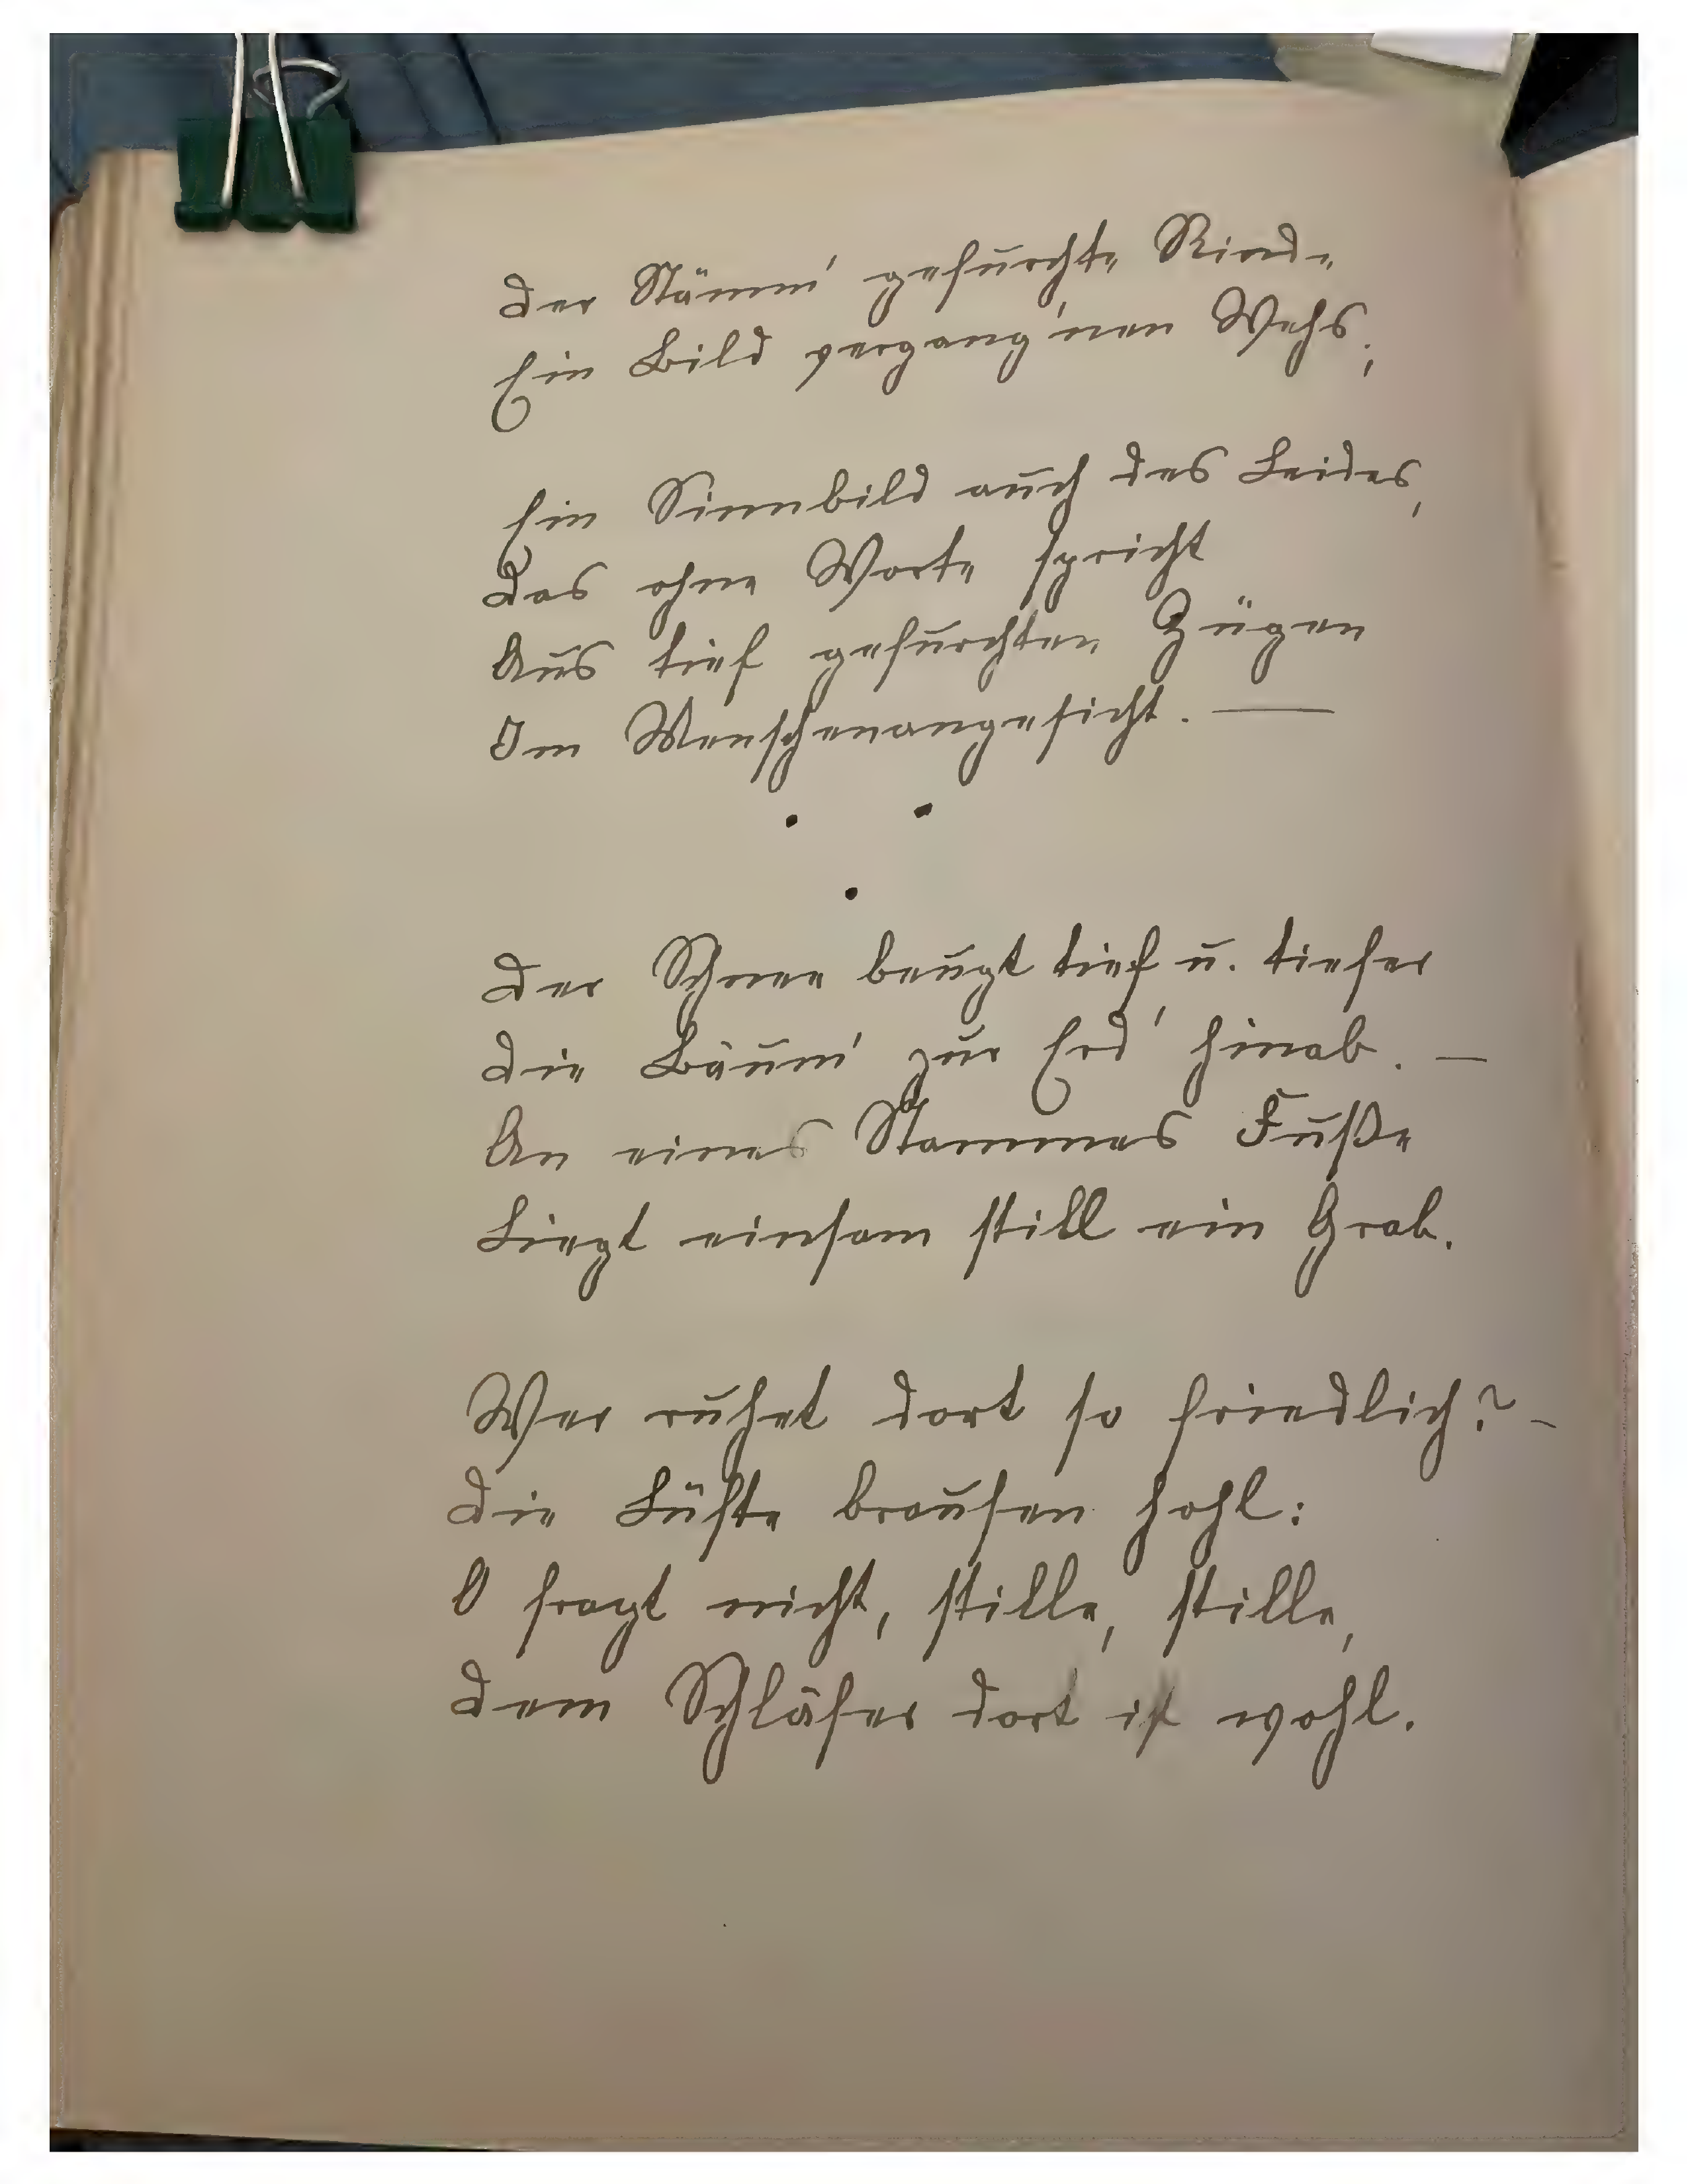 Der Stämm' gefurchte Rinde
Ein Bild vergang'nen Wehs;
Ein Sinnbild auch des Leides,
Das ohne Worte spricht
Aus tief gefurchten Zügen
Im Menschenangesicht. —
Der Schnee beugt tief u. tiefer
Die Bäum' zur Erd' hinab. —
An eines Stammes Fuße
Liegt einsam still ein Grab.
Wer ruhet dort so friedlich? –
Die Lüfte brausen hohl:
O fragt nicht, stille, stille,
Dem Schläfer dort ist wohl.